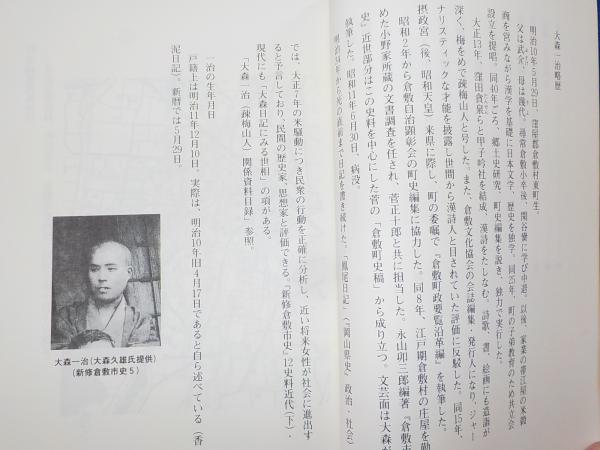 大森一治略歴
明治10年5月29日、窪屋郡倉敷村東町生。
父は武介、母は幾代。尋常倉敷小卒後、閑谷黌に学び中退。以後、家業の帯江屋の米穀
商を営みながら漢学を基礎に日本文学、歴史を独学。同25年、町の子弟教育のため共立会
設立を提唱。同40年ごろ、郷土史研究、町史編集を説き、独力で実行した。
大正13年、窪田食泉らと甲子吟社を結成、漢詩をたしなむ。詩歌、書、絵画にも造詣が
深く、梅をめで疎梅山人と号した。また、倉敷文化協会の会誌編集・発行人になり、ジャー
ナリスティックな才能を披露し世間から漢詩人と目されていた評価に反駁した。同15年、
摂政宮（後、昭和天皇）来県に際し、町の委嘱で『倉敷町政要覧沿革編』を執筆した。
昭和2年から倉敷自治顕彰会の町史編集に協力した。同8年、江戸期倉敷村の庄屋を勤
めた小野家所蔵の文書調査を任され、菅正十郎と共に担当した。永山卯三郎編著『倉敷市
史』近世部分はこの史料を中心にした菅の「倉敷町史稿」から成り立つ。文芸面は大森が
執筆した。昭和11年6月30日、病没。
明治34年から死の直前まで日記を書き続けた。「鳳尾日記」（『岡山県史』政治・社会）
では、大正7年の米騒動につき民衆の行動を正確に分析し、近い将来女性が社会に進出す
ると予言しており、民間の歴史家、思想家と評価できる。『新修倉敷市史』12史料近代（下）・
現代にも「大森日記にみる世相」の項がある。
「大森一治（疎梅山人）関係資料目録」参照。
一治の生年月日
戸籍上は明治11年12月10日、実際は、明治10年旧4月17日であると自ら述べている（香
泥日記）。新暦では5月29日。
大森一治（大森久雄氏提供）
（新修倉敷市史5）